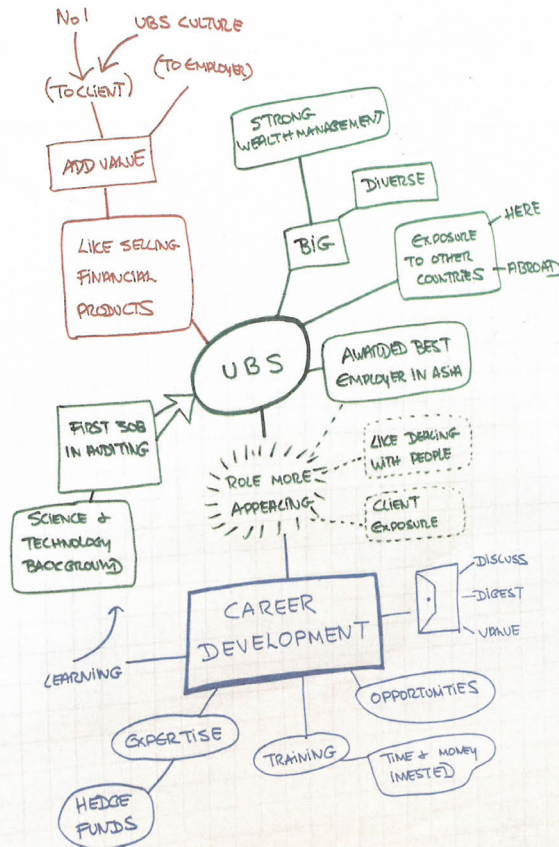 No!
UBS CULTURE
(TO CLIENT)
(TO EMPLOYER)
ADD VALUE
LIKE SELLING
FINANCIAL
PRODUCTS
STRONG
WEALTH MANAGEMENT
DIVERSE
BIG
EXPOSURE
TO OTHER
COUNTRIES
HERE
ABROAD
UBS
AWARDED BEST
EMPLOYER IN ASIA
FIRST JOB
IN AUDITING
SCIENCE &
TECHNOLOGY
BACKGROUND
ROLE MORE
APPEALING
LIKE DEALING
WITH PEOPLE
CLIENT
EXPOSURE
CAREER
DEVELOPMENT
DISCUSS
DIGEST
VALUE
LEARNING
EXPERTISE
HEDGE
FUNDS
TRAINING
OPPORTUNITIES
TIME & MONEY
INVESTED